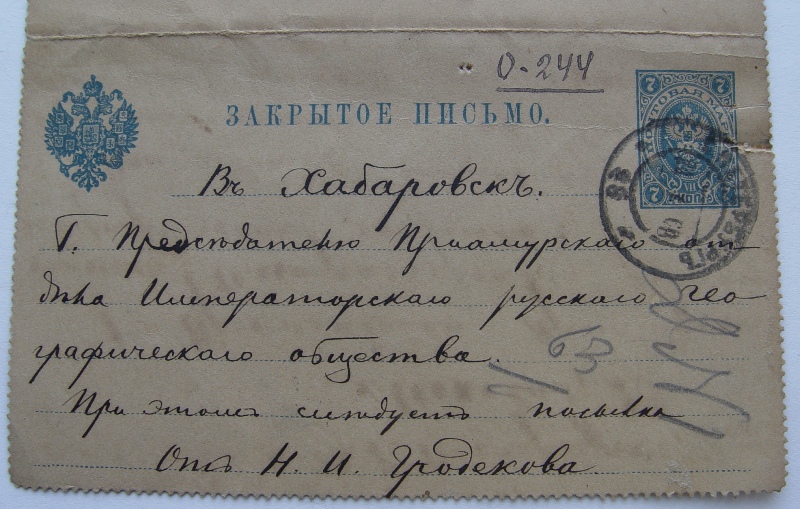 О-244
ЗАКРЫТОЕ ПИСЬМО.
7 7
ПОЧТОВАЯ МАРКА
7 7
Въ Хабаровскъ.
Г. Предсѣдателю Приамурскаго от-
дѣла Императорскаго русскаго гео
графическаго общества.
При этомъ слѣдуетъ посылка
Отъ Н. И. Гродекова.